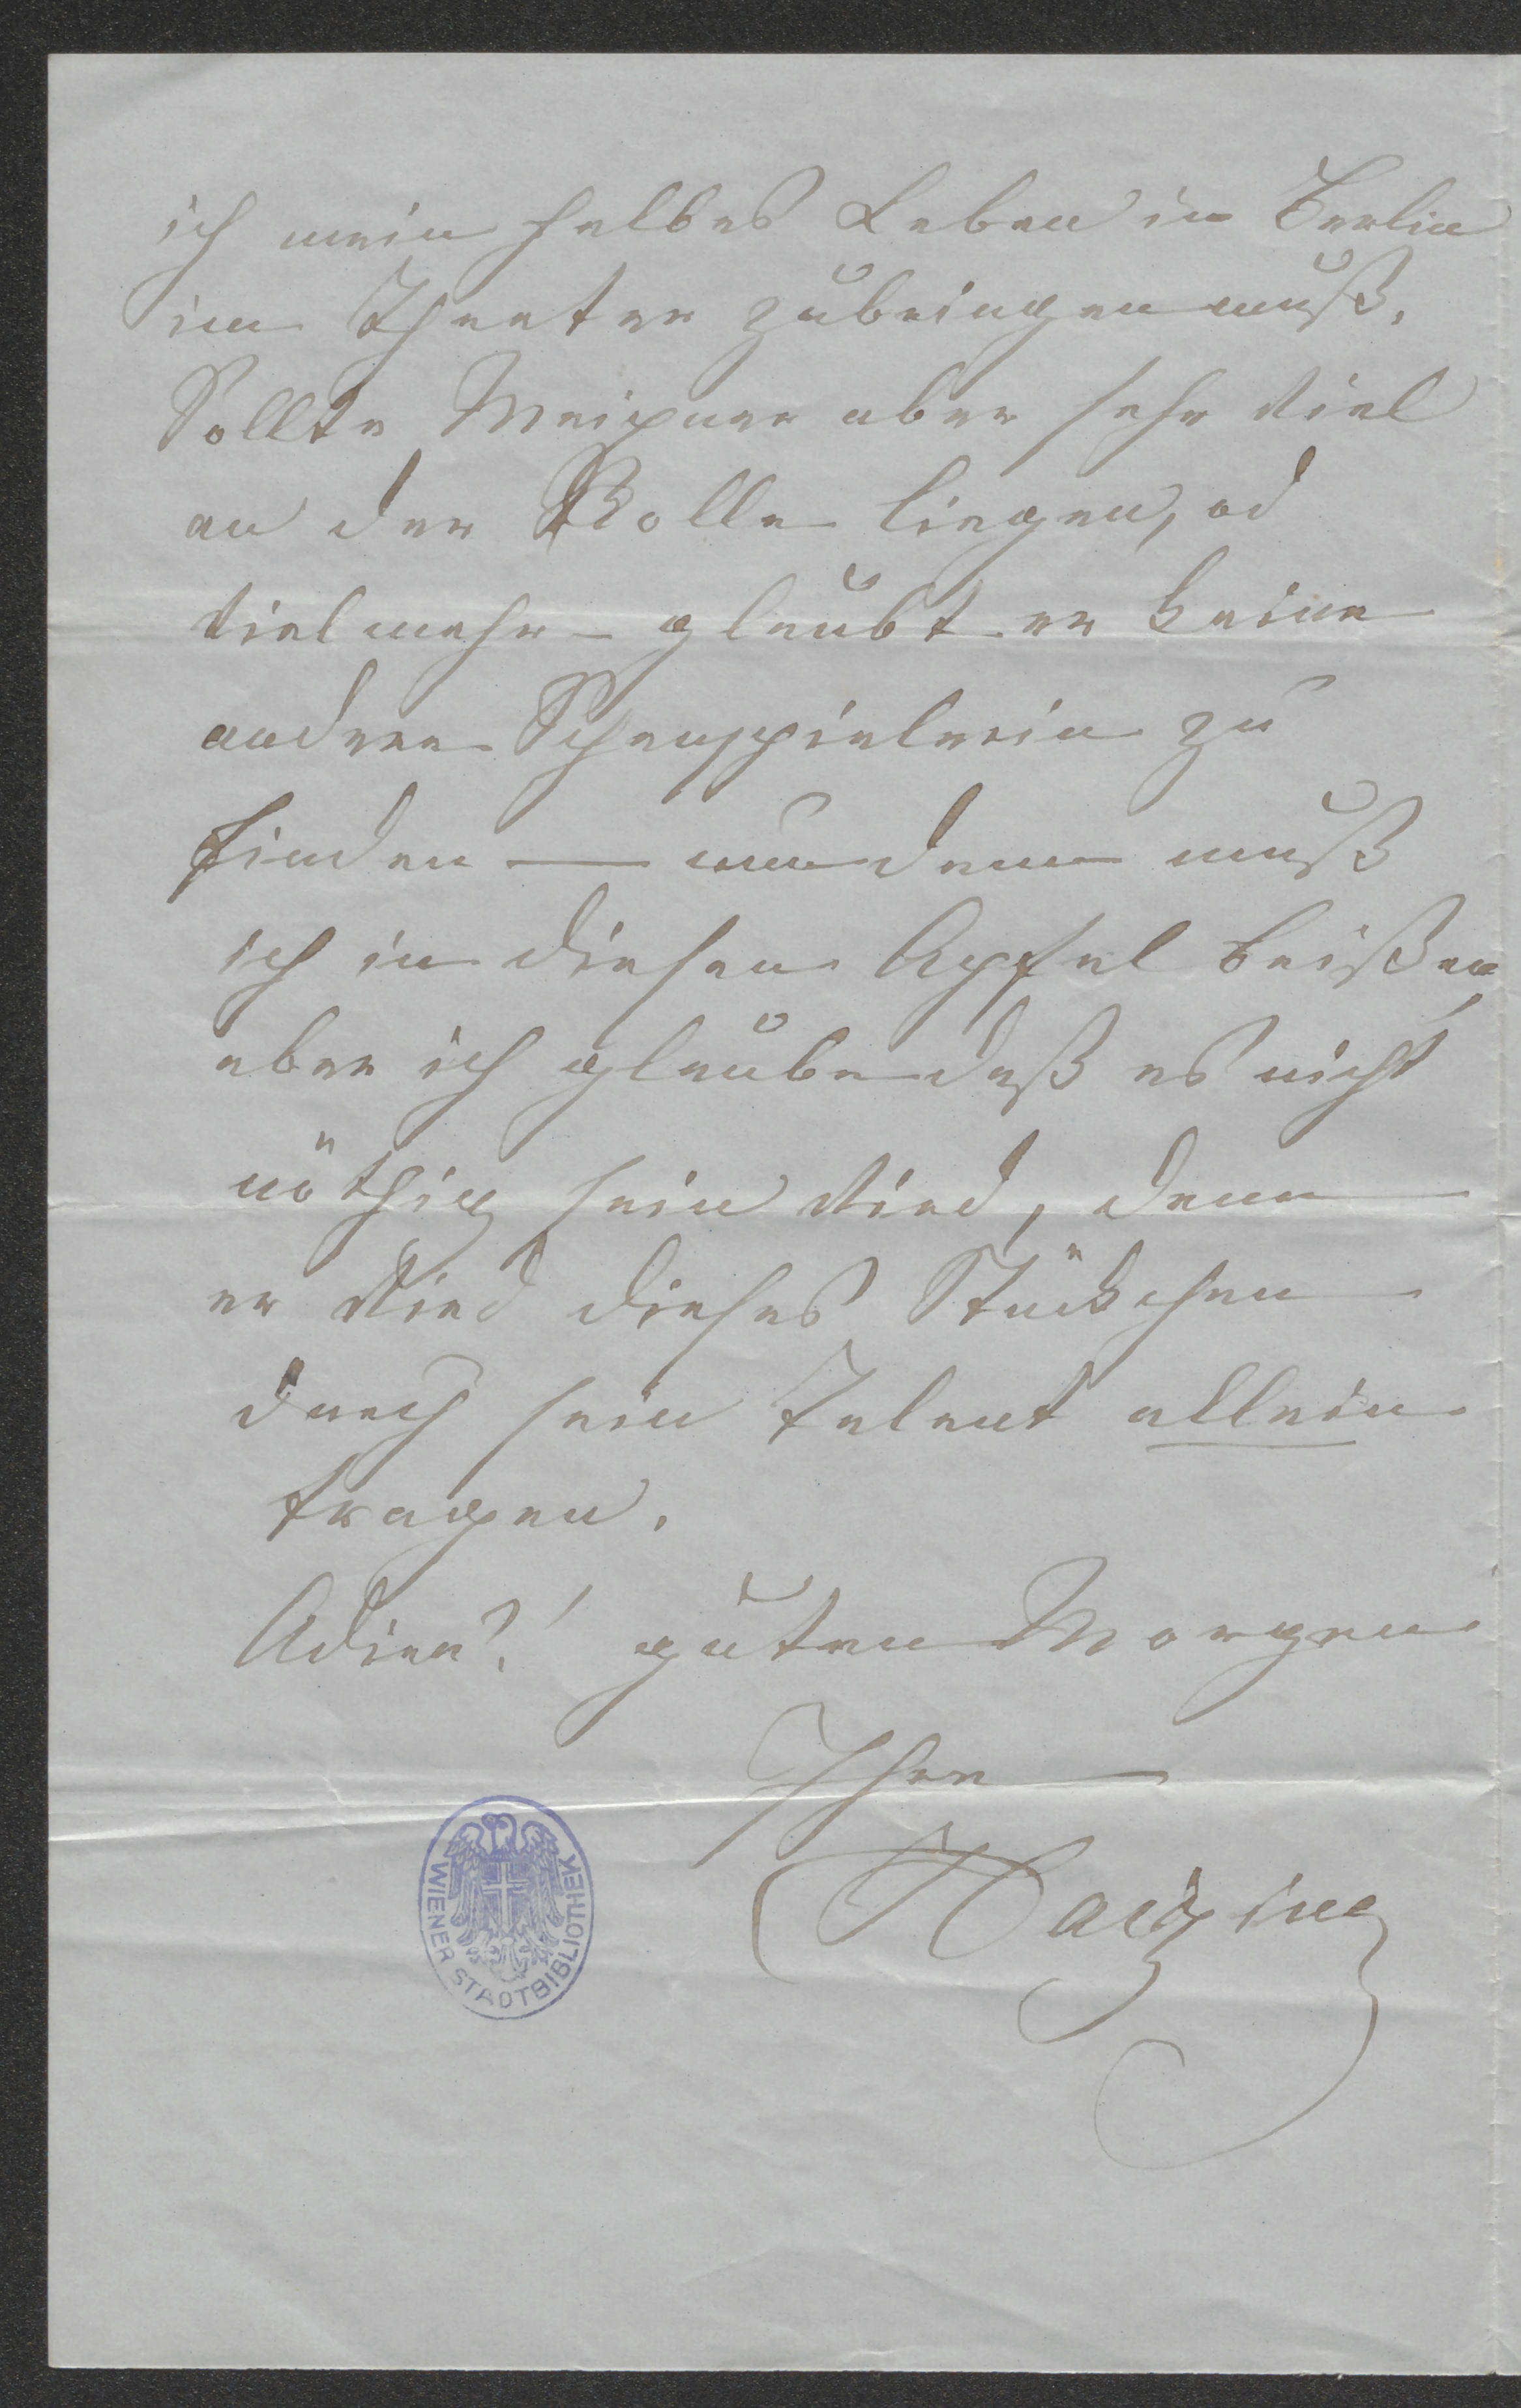 ich mein halbes Leben in Berlin
im Theater zubringen muß.
Sollte Meixner aber sehr viel
an der Rolle liegen, od
vielmehr – glaubt er keine
andere Schauspielerin zu
finden — nun denn muß
ich in diesen Apfel beißen,
aber ich glaube daß es nicht
nöthig sein wird, denn
er wird dieses Stückchen
durch sein Talent allein
tragen.
Adieu! guten Morgen
Ihre
Haizinger
WIENER STADTBIBLIOTHEK